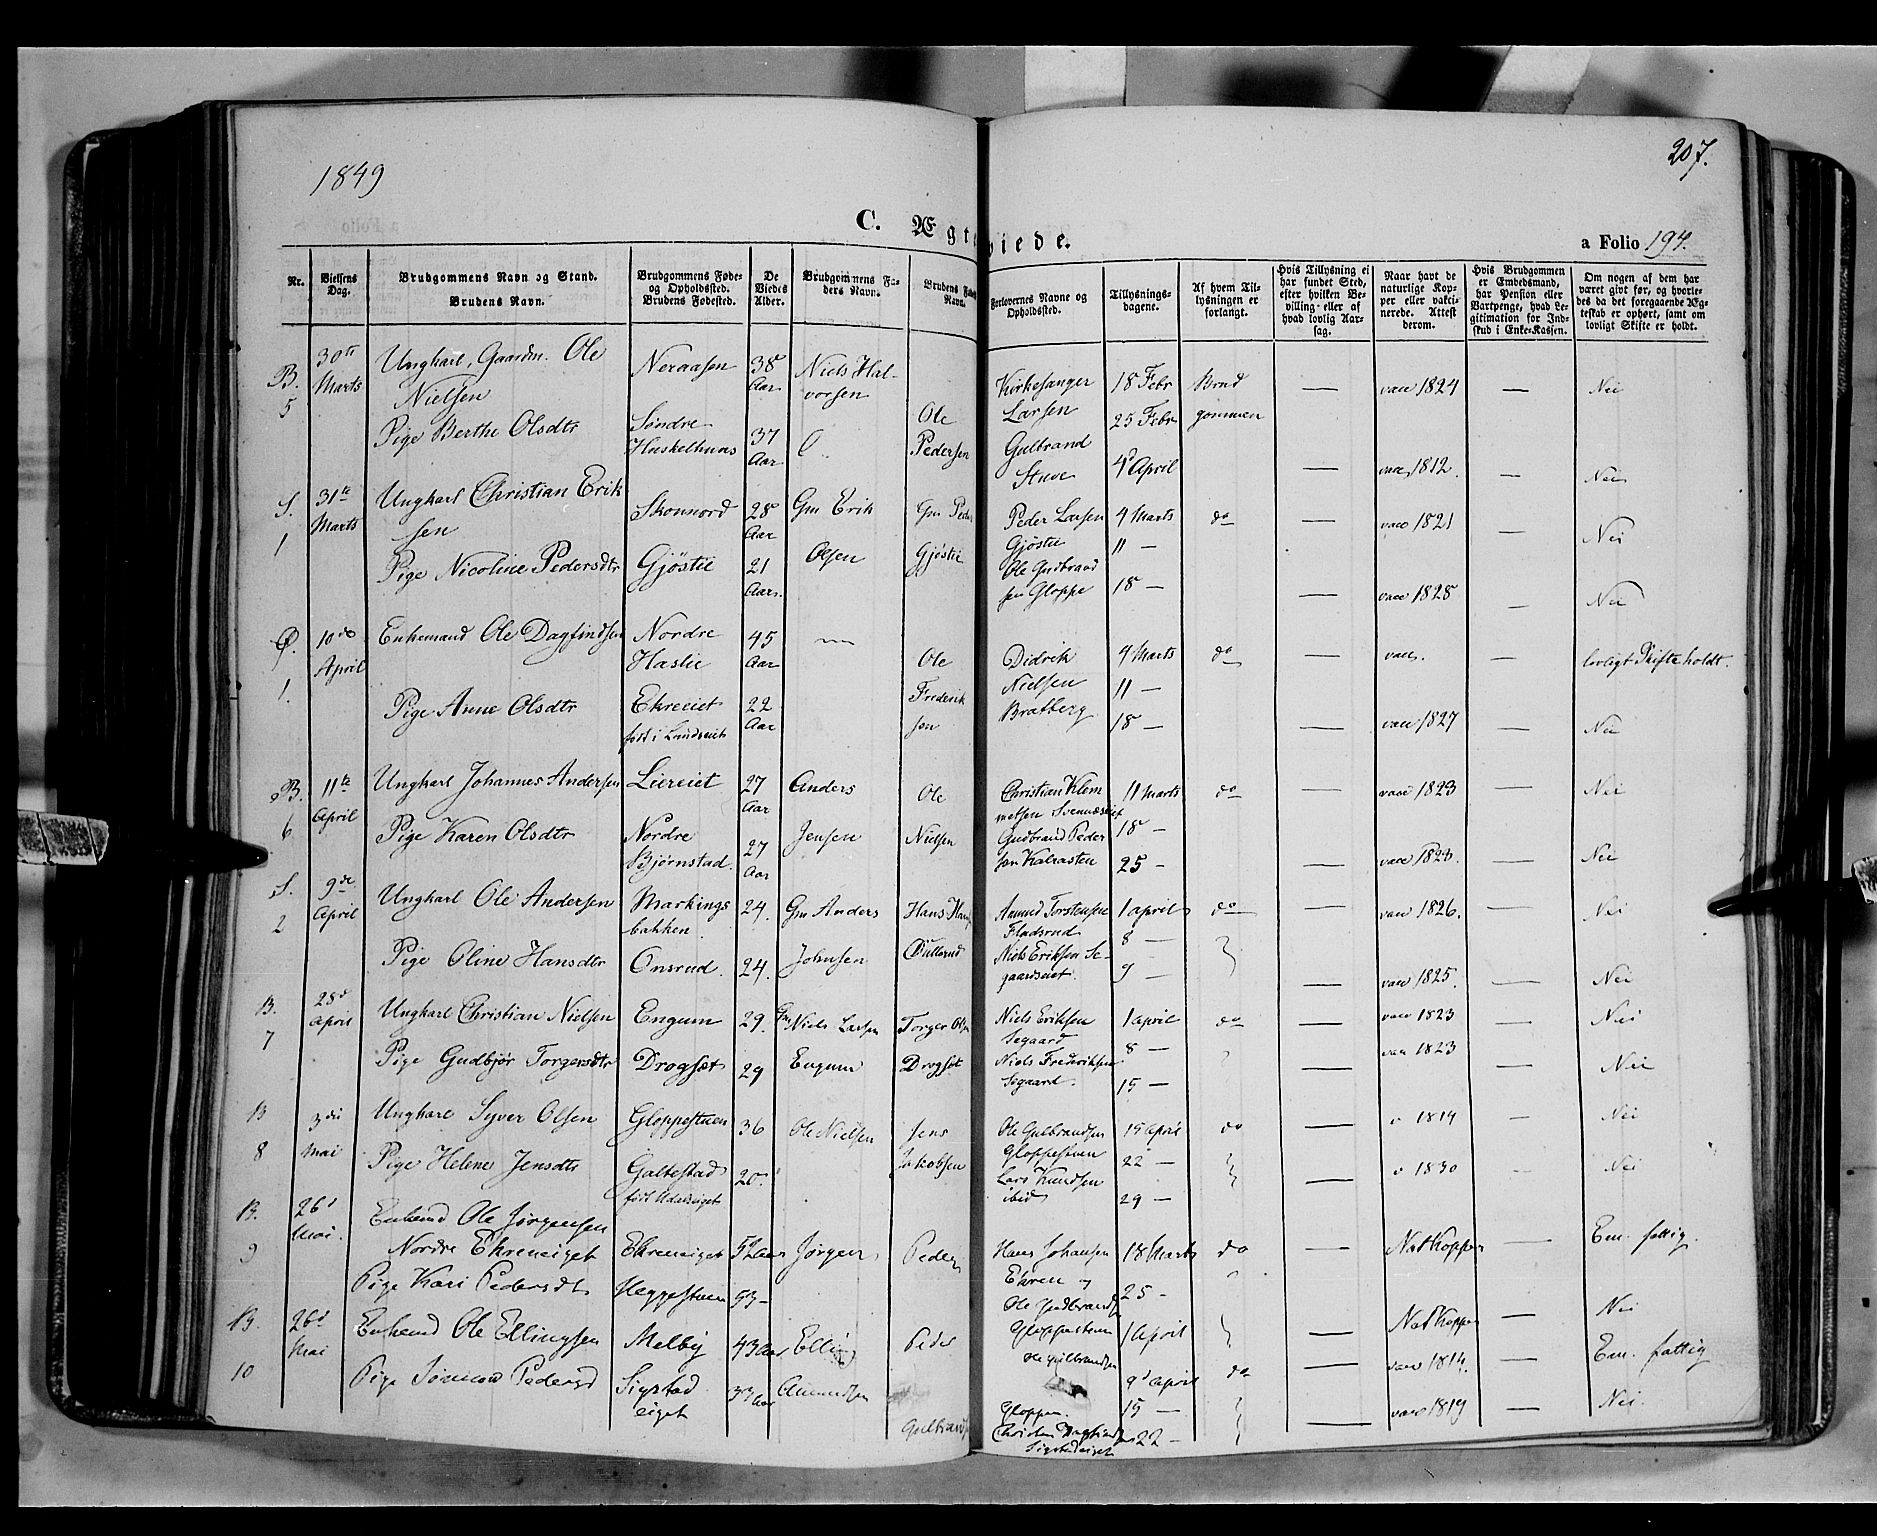 1849
207.
C. Ægteviede.
a Folio 194.
Nr.
Vielsens Dag.
Brudgommens Navn og Stand. Brudens Navn.
Brudgommens Føde- og Opholdssted. Brudens Fødested.
De Viedes Alder.
Brudgommens Faders Navn.
Brudens Faders Navn.
Forlovernes Navne og Opholdssted.
Tillysnings-dagene.
Af hvem Tillysningen er forlangt.
Hvis Tillysning ei har fundet Sted, efter hvilken Bevilling eller af hvad lovlig Aarsag.
Naar havt de naturlige Kopper eller vaccinerede. Attest derom.
Hvis Brudgommen er Embedsmand, har Pension eller Vartpenge, hvad Legitimation for Indskud i Enke-Kassen.
Om nogen af dem har været givt før, og hvorledes da det foregaaende Ægteskab er ophørt, samt om lovligt Skifte er holdt.
B. 5 30te Marts Ungkarl, Gaardm. Ole Nielsen Neraasen 38 Aar Niels Halvorsen Kirkesanger Larsen 18 Febr Brudgommen — vace 1824 — Nei
Pige Berthe Olsdtr Søndre Haskelhuus 37 Aar Ole Pedersen Gulbrand Stuve 25 Febr 4d April — vace 1812. Nei
S. 1 31te Marts Ungkarl Christian Eriksen Skonnord 28 Aar Gm Erik Olsen Peder Larsen Gjøstie 4 Marts do — vace 1821 — Nei
Pige Nicoline Pedersdtr Gjøstie 21 Aar. Gm Peder Gjøstie Ole Gudbrandsen Gloppe 11 — 18 — — vace 1828 — Nei
1. 10de April Enkemand Ole Dagfindsen Nordre Haslie 45 Aar — Didrik Nielsen Bratberg 4 Marts do — vace. — lovligt Skifte holdt.
Pige Anne Olsdtr Ekreeiet født i Landseiet 22 Aar Ole Frederiksen 11 — 18 — — vace 1827 — Nei
B. 6 11te April Ungkarl Johannes Andersen Liereiet 27 Aar Anders Jensen Christian Klemmetsen 11 Marts do — vace 1823 — Nei
Pige Karen Olsdtr Nordre Bjørnstad. 27 Aar Ole Nielsen Gudbrand Pedersen 18 — 25 — — vace 1823. — Nei
S. 2 9de April Ungkarl Ole Andersen Markingsbakken 24. Gm Anders Johnsen Amund Torstensen Fladsrud 1 April do — vace 1826. — Nei
Pige Oline Hansdtr Onsrud. 24. Hans Hans Niels Eriksen Segaardseiet. 8 — 9 — — vace 1825. — Nei
B. 7 28d April Ungkarl Christian Nielsen Engum 29. Gm Niels Larsen Engum Niels Eriksen Segaard 1 April do — vace 1823 — Nei
Pige Gudbjør Torgersdtr Drogset 29 Torger Olsen Drogset Niels Frederiksen Segaard. 8 — 15 — — vac 1823 — Nei
B 8 3die Mai Ungkarl Syver Olsen Gloppestuen 36 Ole Nielsen Ole Gulbrandsen Gloppestuen 15 April do — v 1814 — Nei
Pige Helene Jensdtr Galtestad 20. Jens Jakobsen Lars Knudsen ibid 22 — 29 — — v 1830 — Nei
B. 9 26d Mai. Enkemd Ole Jørgensen Nordre Ekreneiget Ekreneiget Jørgen Hans Johansen Ekren og 18 Marts do — Nat Kopper — Em. fattig.
Pige Kari Pedersdt Heggestuen 53 — Peder Ole Gudbrands Gloppestuen 25 - 1 April — Nat Kopper — Nei
B. 10 26d Mai Enkemd Ole Ellingsen Melby 43 Aar Elling Amundsen Ole Gulbrandsen Gloppen. 9d April do — vace 1814. — Em. fattig
Pige Pedersd Sigstadeiget 33 Aar Peder Gulbrands Sigstadeiget 15 — 22 — — vace 1819 — Nei.